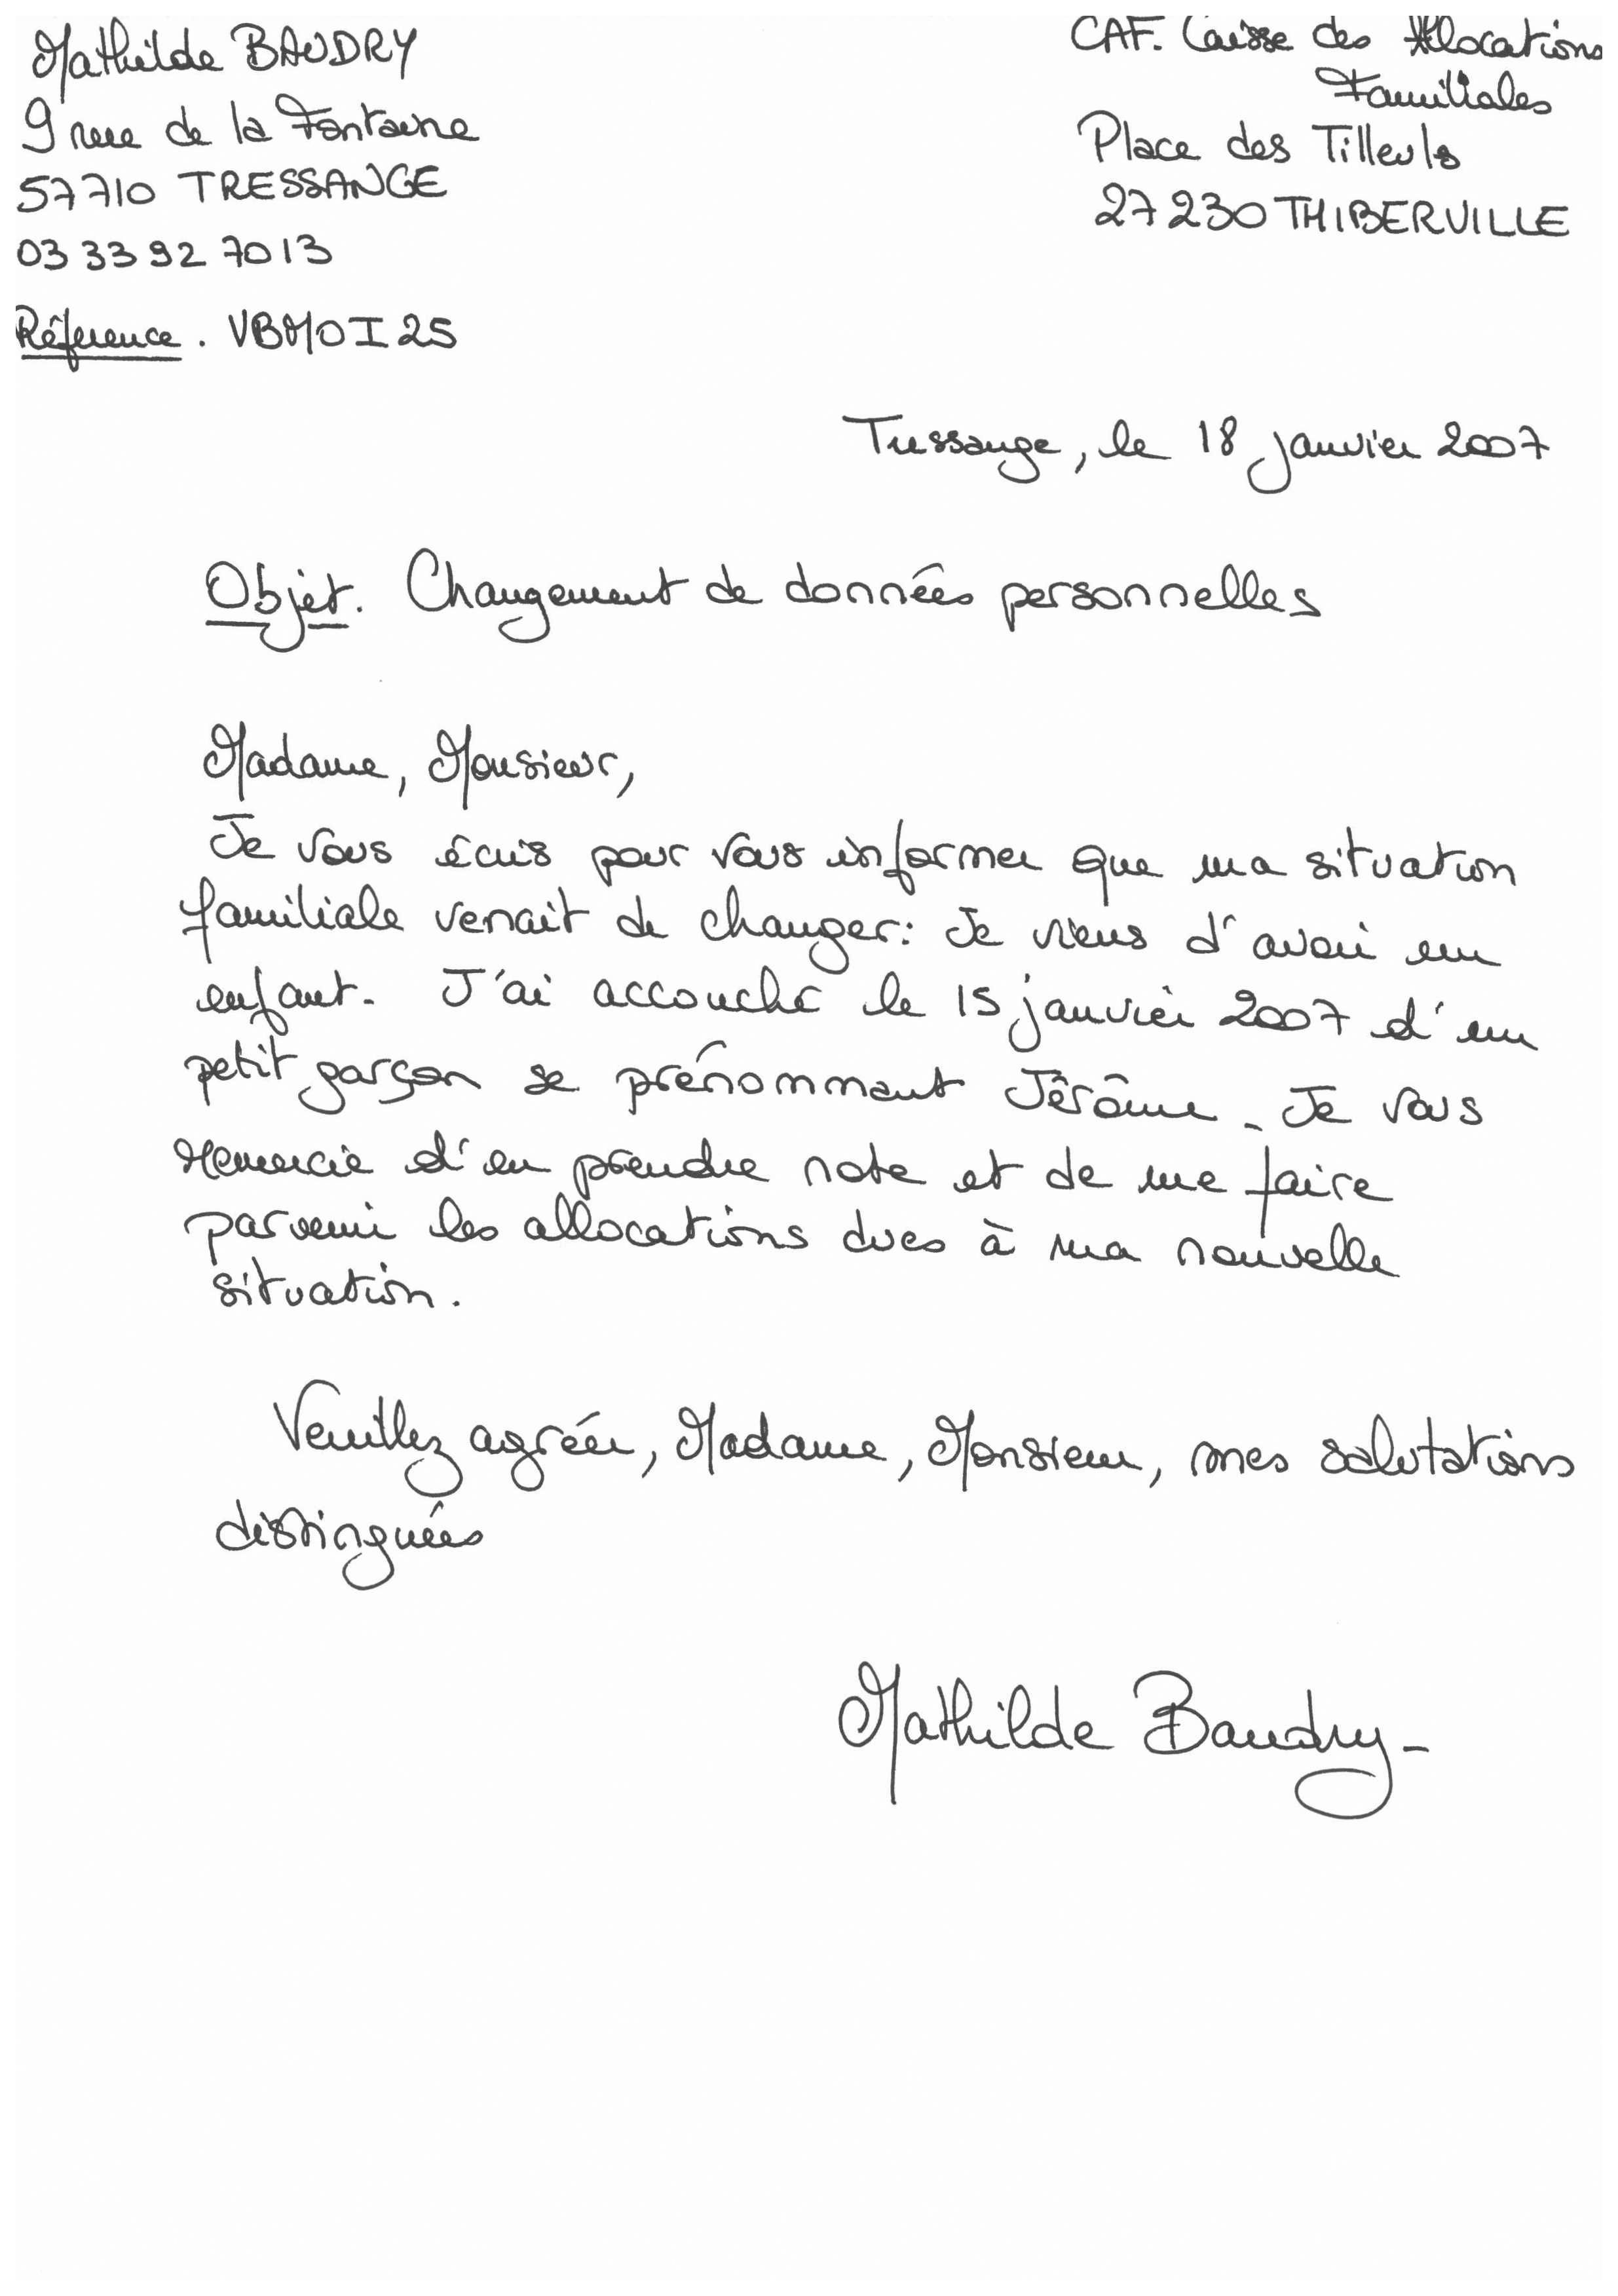 Mathilde BAUDRY
9 rue de la Fontaine
57710 TRESSANGE
03 33 92 70 13
Référence. VBMOI25
CAF. Caisse des Allocations
Familiales
Place des Tilleuls
27230 THIBERVILLE
Tressange, le 18 janvier 2007
Objet. Changement de données personnelles
Madame, Monsieur,
Je vous écris pour vous informer que ma situation
familiale venait de changer: Je viens d'avoir un
enfant. J'ai accouché le 15 janvier 2007 d'un
petit garçon se prénommant Jérôme. Je vous
remercie d'en prendre note et de me faire
parvenir les allocations dues à ma nouvelle
situation.
Veuillez agréer, Madame, Monsieur, mes salutations
distinguées
Mathilde Baudry-